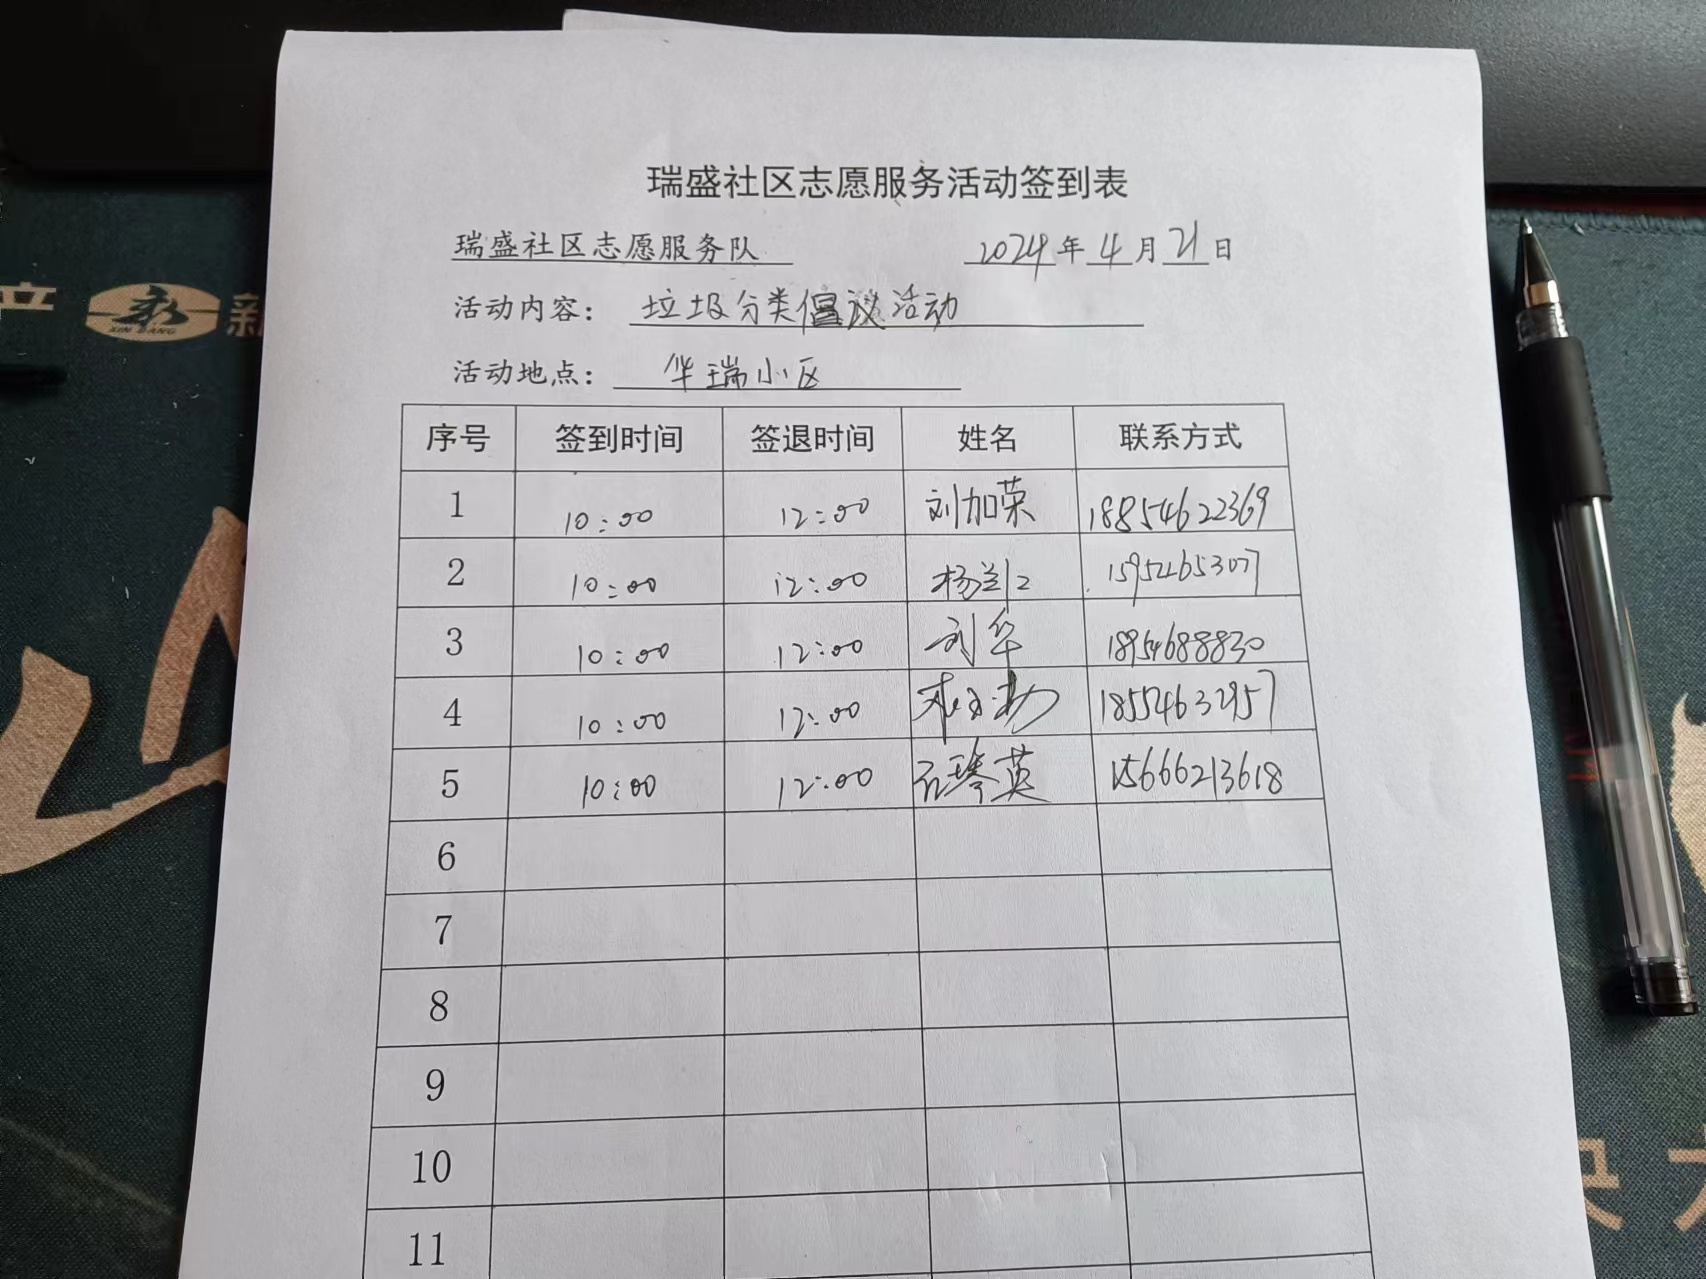 瑞盛社区志愿服务活动签到表
瑞盛社区志愿服务队 2024年4月21日
活动内容： 垃圾分类倡议活动
活动地点： 华瑞小区
序号 签到时间 签退时间 姓名 联系方式
1 10:00 12:00 刘加荣 18854622369
2 10:00 12:00 杨兰江 15954653077
3 10:00 12:00 刘华 18954688830
4 10:00 12:00 18554632957
5 10:00 12:00 石琴英 15666213618
6
7
8
9
10
11
产
XIN BANG
新